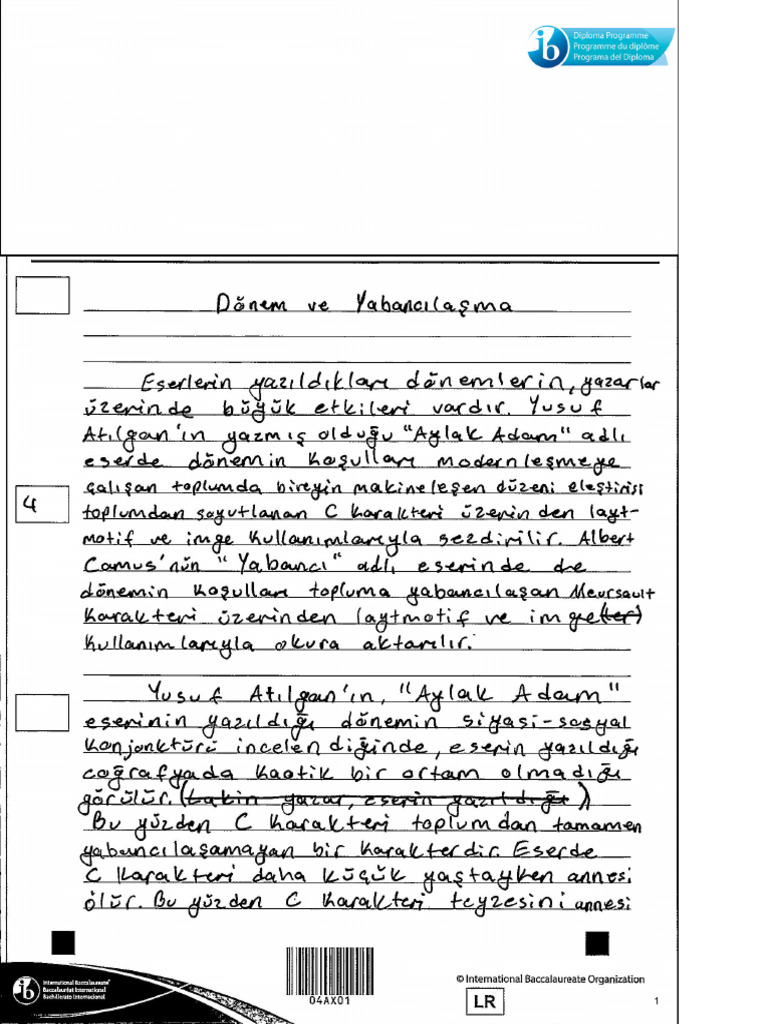 Diploma Programme
Programme du diplôme
Programa del Diploma
Dönem ve Yabancılaşma
Eserlerin yazıldıkları dönemlerin, yazarlar
üzerinde büyük etkileri vardır. Yusuf
Atılgan'ın yazmış olduğu "Aylak Adam" adlı
eserde dönemin koşulları modernleşmeye
4
çalışan toplumda bireyin makineleşen düzeni eleştirisi
toplumdan soyutlanan C karakteri üzerinden layt-
motif ve imge kullanımlarıyla sezdirilir. Albert
Camus'nün "Yabancı" adlı eserinde de
dönemin koşulları topluma yabancılaşan Meursault
karakteri üzerinden laytmotif ve imge(ler)
kullanımlarıyla okura aktarılır.
Yusuf Atılgan'ın, "Aylak Adam"
eserinin yazıldığı dönemin siyasi-sosyal
konjonktürü incelendiğinde, eserin yazıldığı
coğrafyada kaotik bir ortam olmadığı
görülür. (Lakin yazar, eserin yazıldığı)
Bu yüzden C karakteri toplumdan tamamen
yabancılaşamayan bir karakterdir. Eserde
C karakteri daha küçük yaştayken annesi
ölür. Bu yüzden C karakteri teyzesini annesi
International Baccalaureate®
Baccalauréat International
Bachillerato Internacional
04AX01
© International Baccalaureate Organization
LR
1